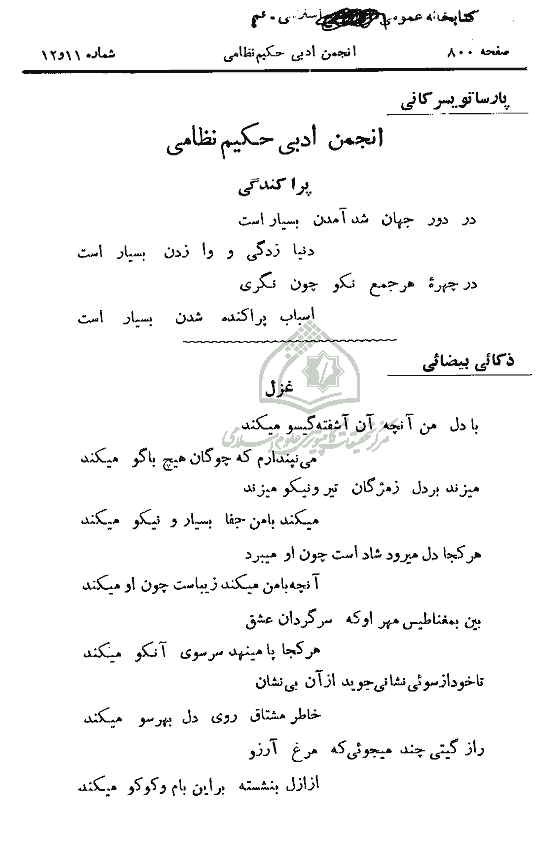 کتابخانه عمومی
صفحه ۸۰۰ انجمن ادبی حکیم نظامی شماره ۱۱و۱۲
پارسا تویسرکانی
انجمن ادبی حکیم نظامی
پراکندگی
در دور جهان شد آمدن بسیار است
دنیا زدگی و وا زدن بسیار است
در چهرهٔ هر جمع نکو چون نگری
اسباب پراکنده شدن بسیار است
ذکائی بیضائی
غزل
با دل من آنچه آن آشفته گیسو میکند
می نپندارم که چوگان هیچ باگو میکند
میزند بردل زمژگان تیر و نیکو میزند
میکند بامن جفا بسیار و نیکو میکند
هرکجا دل میرود شاد است چون او میبرد
آنچه بامن میکند زیباست چون او میکند
بین بمغناطیس مهر اوکه سرگردان عشق
هرکجا پا مینهد سرسوی آنکو میکند
تاخود ازسوئی نشانی جوید ازآن بی نشان
خاطر مشتاق روی دل بهرسو میکند
راز گیتی چند میجوئی که مرغ آرزو
ازازل بنشسته براین بام وکوکو میکند
مرکز تحقیقات کامپیوتری علوم اسلامی